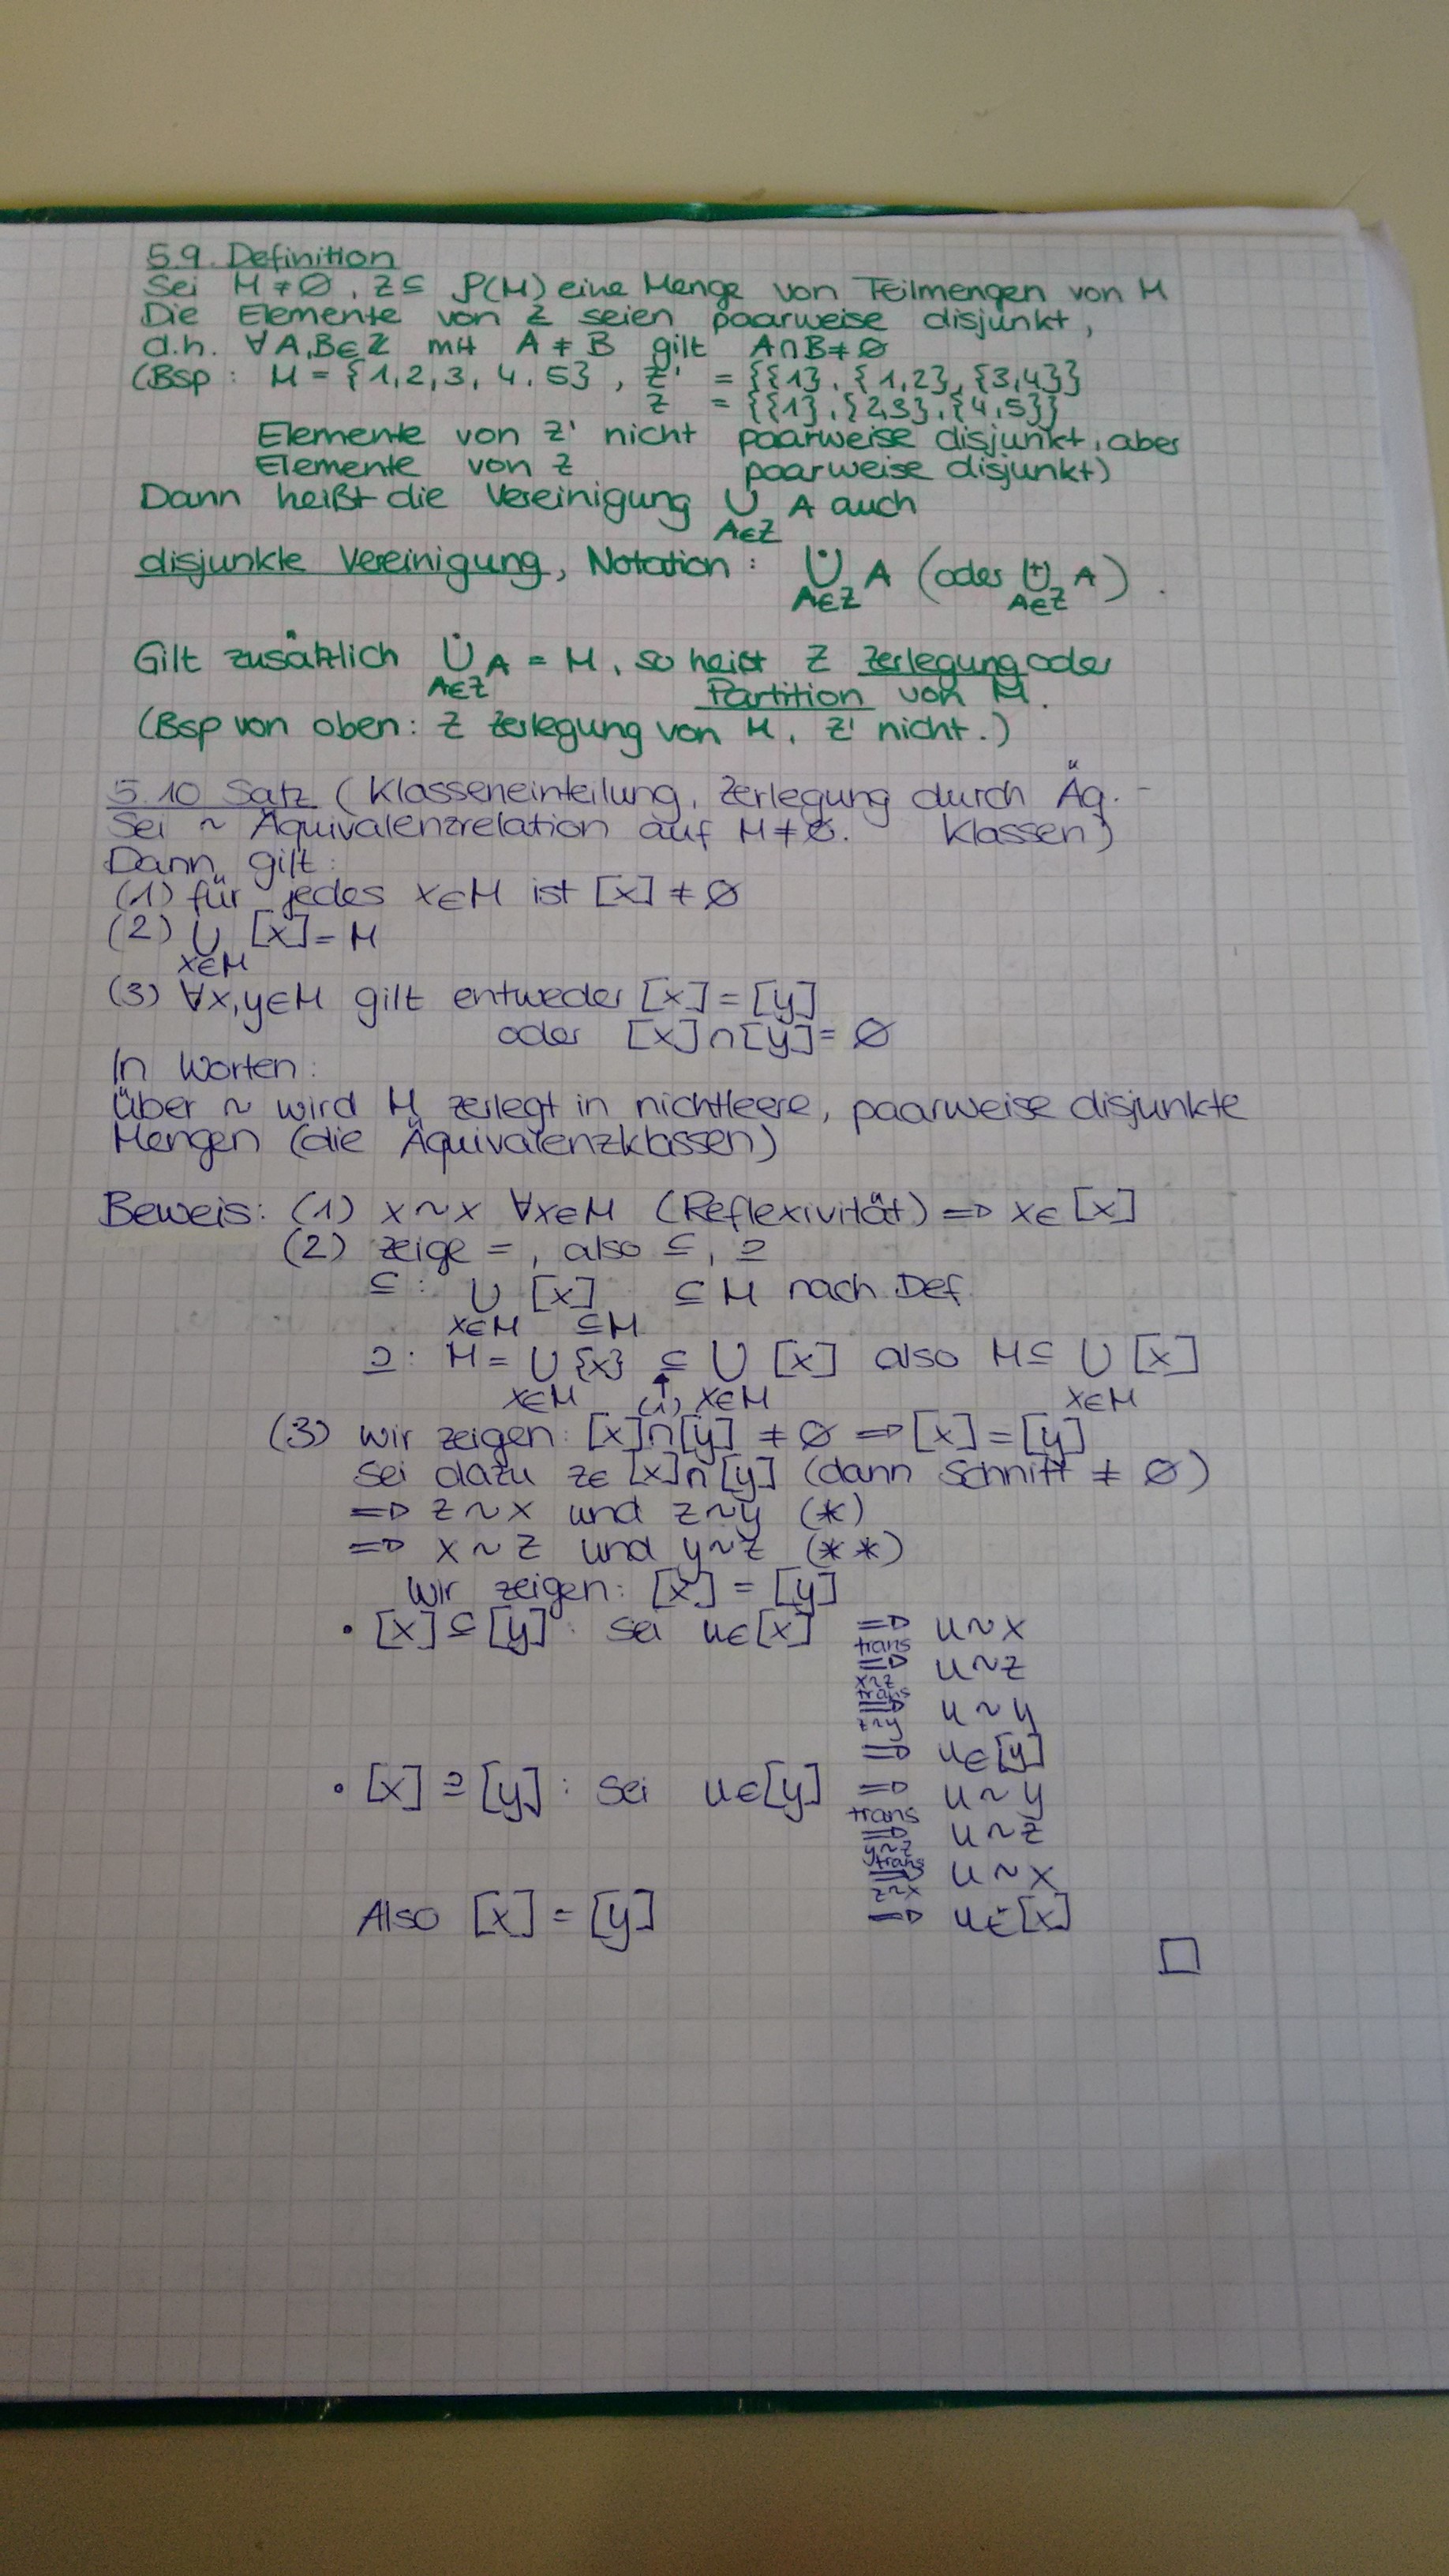 5.9. Definition
Sei M ≠ ∅, Z ⊆ P(M) eine Menge von Teilmengen von M
Die Elemente von Z seien paarweise disjunkt,
d.h. ∀ A,B ∈ Z mit A ≠ B gilt A ∩ B ≠ ∅
(Bsp: M = {1,2,3,4,5}, Z' = {{1}, {1,2}, {3,4}}
Z = {{1}, {2,3}, {4,5}}
Elemente von Z' nicht paarweise disjunkt, aber
Elemente von Z paarweise disjunkt)
Dann heißt die Vereinigung ∪ A auch
A∈Z
disjunkte Vereinigung, Notation: ∪̇ A (oder ⊎ A).
A∈Z A∈Z
Gilt zusätzlich ∪̇ A = M, so heißt Z Zerlegung oder
A∈Z Partition von M.
(Bsp von oben: Z Zerlegung von M, Z' nicht.)
5.10 Satz (Klasseneinteilung, Zerlegung durch Äq.-
Sei ~ Äquivalenzrelation auf M ≠ ∅. Klassen)
Dann gilt:
(1) für jedes x∈M ist [x] ≠ ∅
(2) ∪ [x] = M
x∈M
(3) ∀x,y∈M gilt entweder [x] = [y]
oder [x]∩[y] = ∅
In Worten:
Über ~ wird M zerlegt in nichtleere, paarweise disjunkte
Mengen (die Äquivalenzklassen)
Beweis: (1) x ~ x ∀x∈M (Reflexivität) ⇒ x∈[x]
(2) zeige =, also ⊆, ⊇
⊆: ∪ [x] ⊆ M nach Def.
x∈M ⊆M
⊇: M = ∪ {x} ⊆ ∪ [x] also M ⊆ ∪ [x]
x∈M ↑(1) x∈M x∈M
(3) Wir zeigen: [x]∩[y] ≠ ∅ ⇒ [x] = [y]
Sei dazu z∈[x]∩[y] (dann Schnitt ≠ ∅)
⇒ z ~ x und z ~ y (*)
⇒ x ~ z und y ~ z (**)
Wir zeigen: [x] = [y]
• [x] ⊆ [y]: Sei u∈[x] ⇒ u ~ x
trans
⇒ u ~ z
x~z
trans
⇒ u ~ y
z~y
⇒ u∈[y]
• [x] ⊇ [y]: Sei u∈[y] ⇒ u ~ y
trans
⇒ u ~ z
y~z
trans
⇒ u ~ x
z~x
Also [x] = [y] ⇒ u∈[x]
□